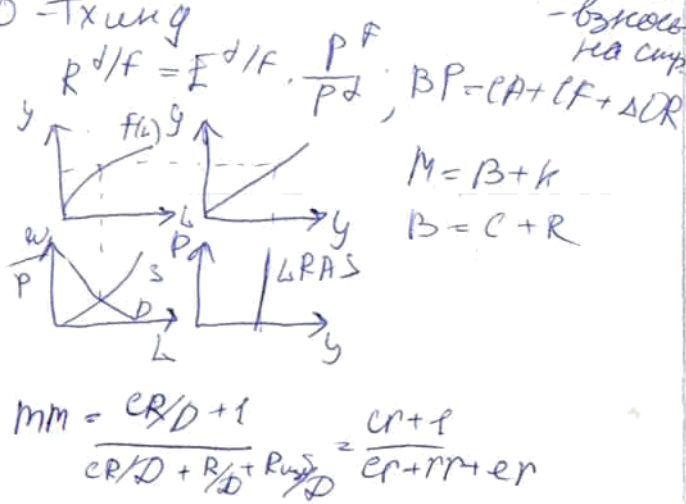 - Tx инд
- взнос
на стр
R^d/f = E^d/f · P^F / P^d ; BP = CA + CF + ΔOR
y f(L) y
M = B + k
L y
B = C + R
W/P S D P LRAS
L y
mm = (CR/D + 1) / (CR/D + R/D + Rизб/D) = (cr + 1) / (cr + rr + er)